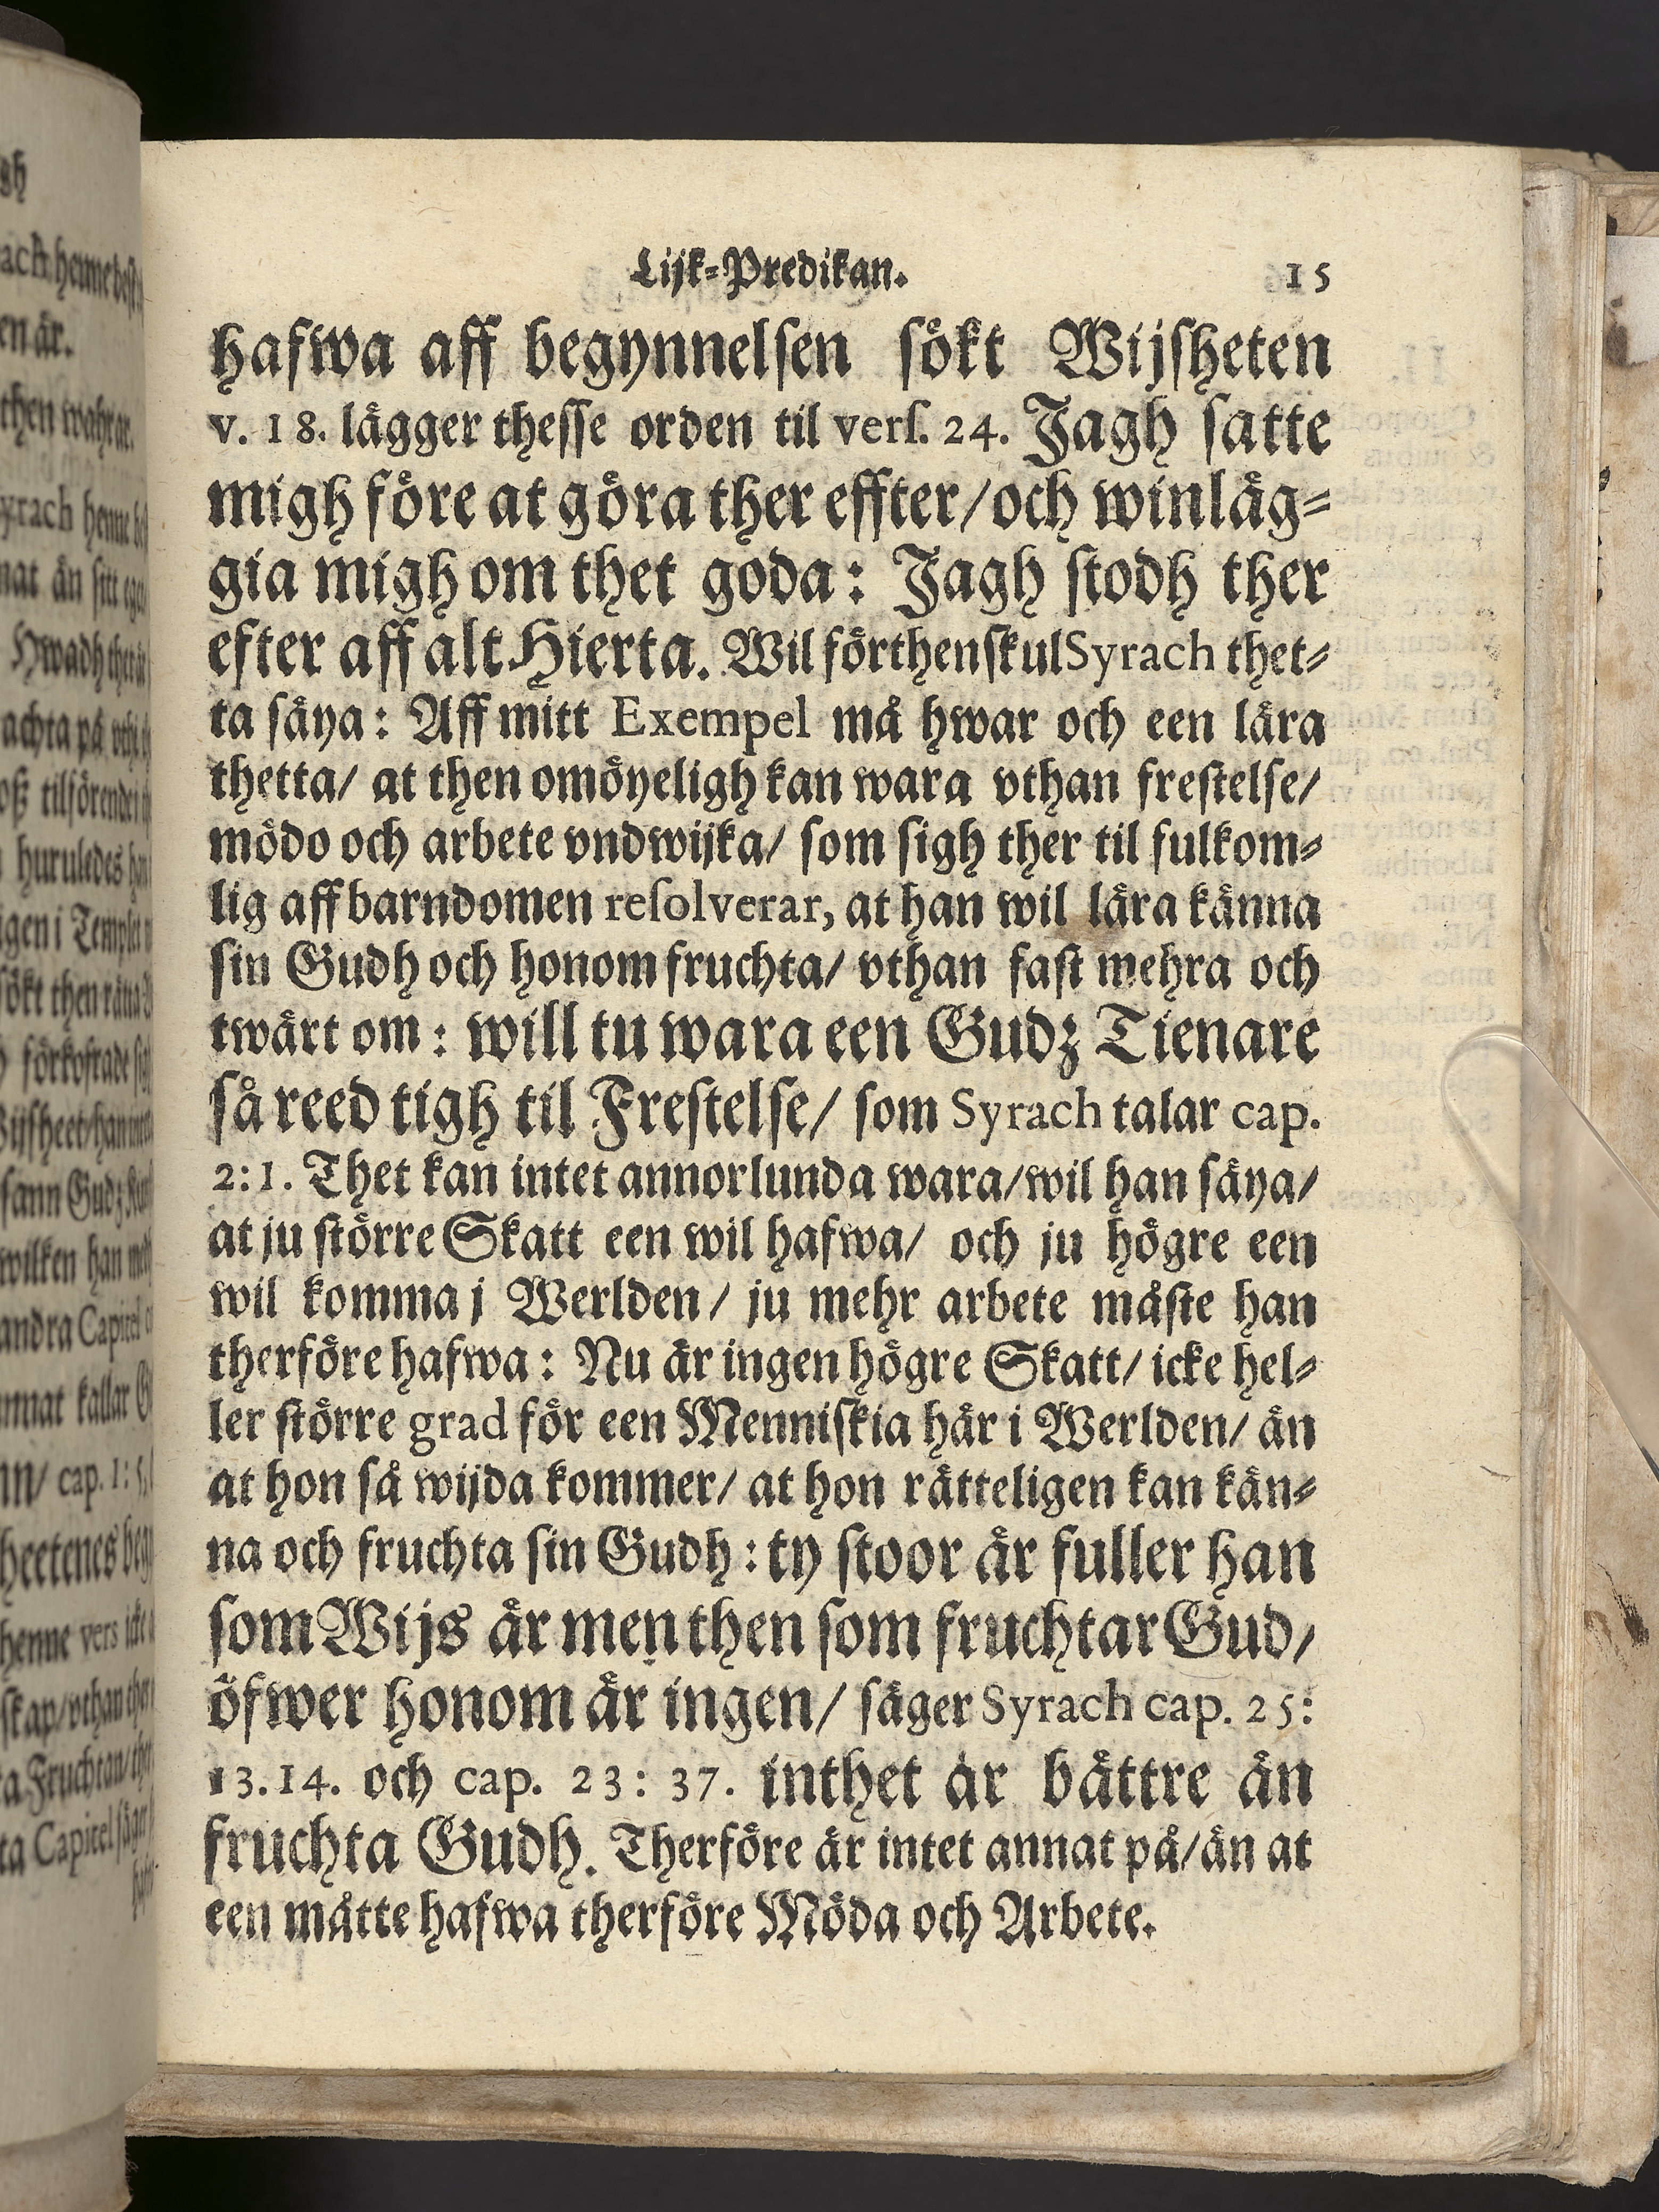 Lijk=Predikan. 15
hafwa aff begynnelsen sökt Wijsheten
v. 18. lägger thesse orden til vers. 24. Jagh satte
migh före at göra ther effter/och winläg=
gia migh om thet goda: Jagh stodh ther
efter aff alt Hierta. Wil förthenskul Syrach thet=
ta säya: Aff mitt Exempel må hwar och een lära
thetta/ at then omöyeligh kan wara vthan frestelse/
mödo och arbete vndwijka/ som sigh ther til fulkom=
lig aff barndomen resolverar, at han wil lära känna
sin Gudh och honom fruchta/ vthan fast mehra och
twärt om: will tu wara een Gudz Tienare
så reed tigh til Frestelse/ som Syrach talar cap.
2:1. Thet kan intet annorlunda wara/wil han säya/
at ju större Skatt een wil hafwa/ och ju högre een
wil komma j Werlden/ ju mehr arbete måste han
therföre hafwa: Nu är ingen högre Skatt/ icke hel=
ler större grad för een Menniskia här i Werlden/ än
at hon så wijda kommer/ at hon rätteligen kan kän=
na och fruchta sin Gudh: ty stoor är fuller han
som Wijs är men then som fruchtar Gud/
öfwer honom är ingen/ säger Syrach cap. 25:
13.14. och cap. 23: 37. inthet är bättre än
fruchta Gudh. Therföre är intet annat på/än at
een måtte hafwa therföre Möda och Arbete.